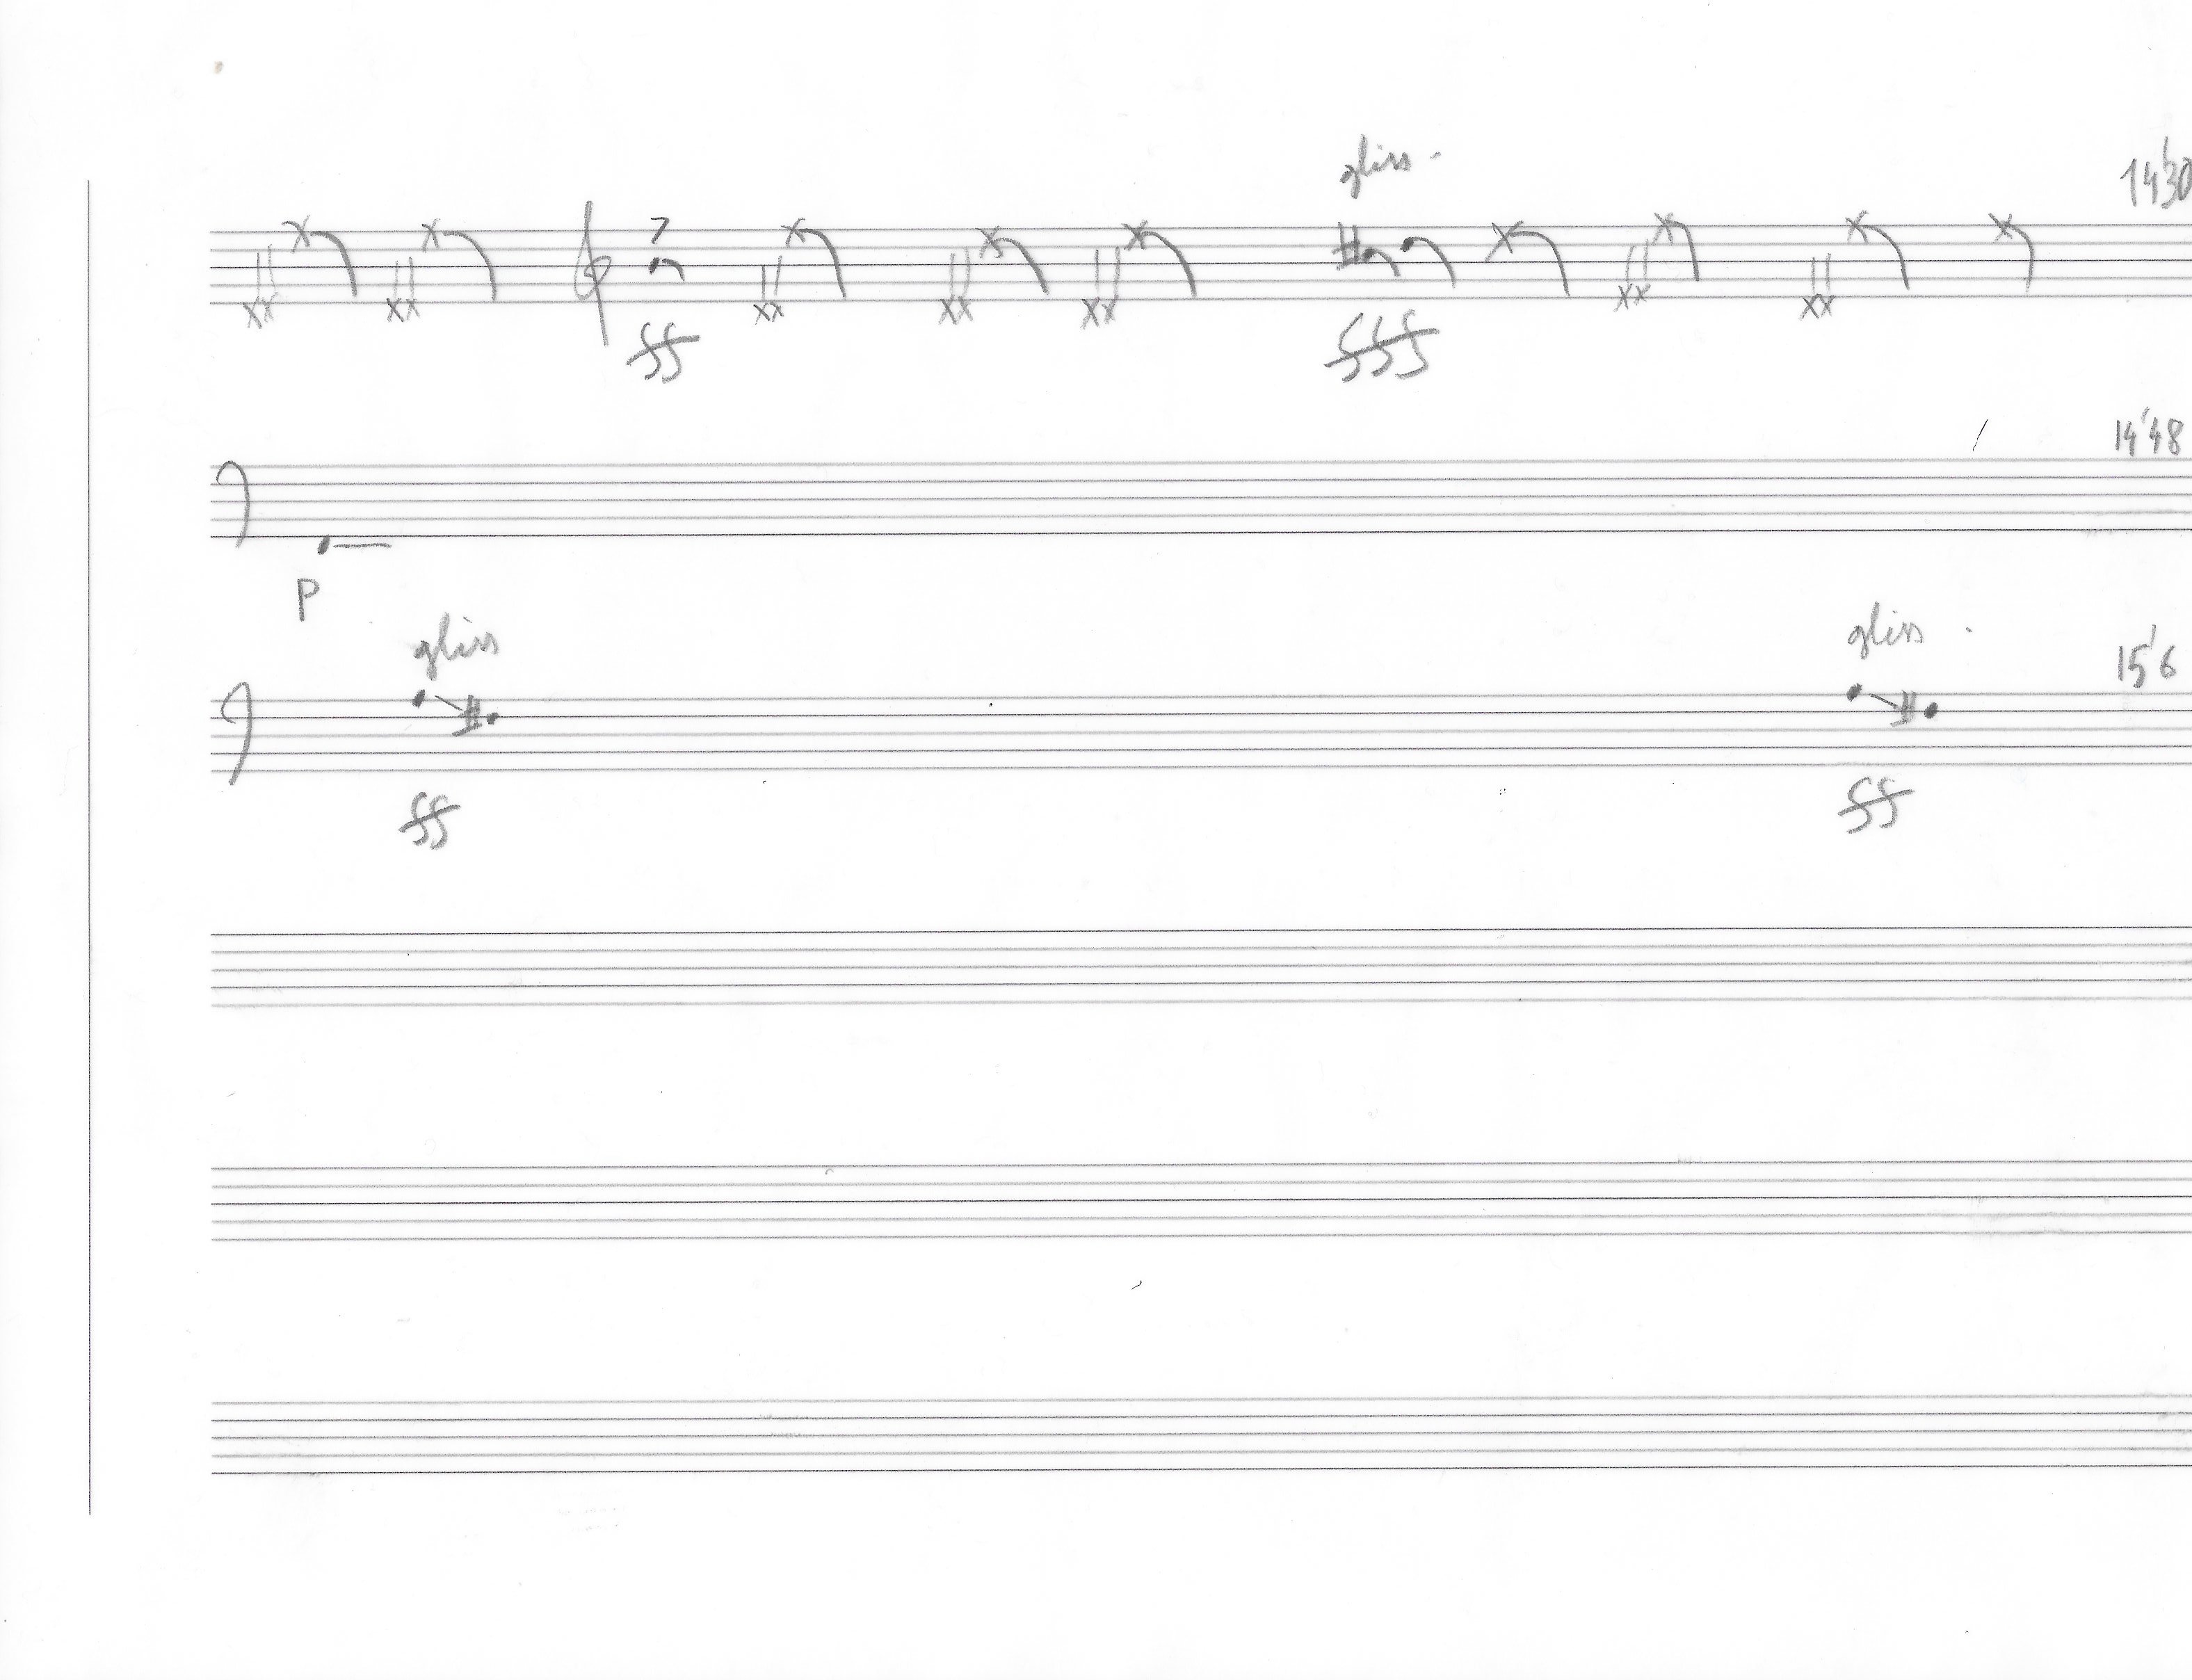 gliss.
14'30
7
ff
fff
14'48
P
gliss
gliss.
15'6
ff
ff